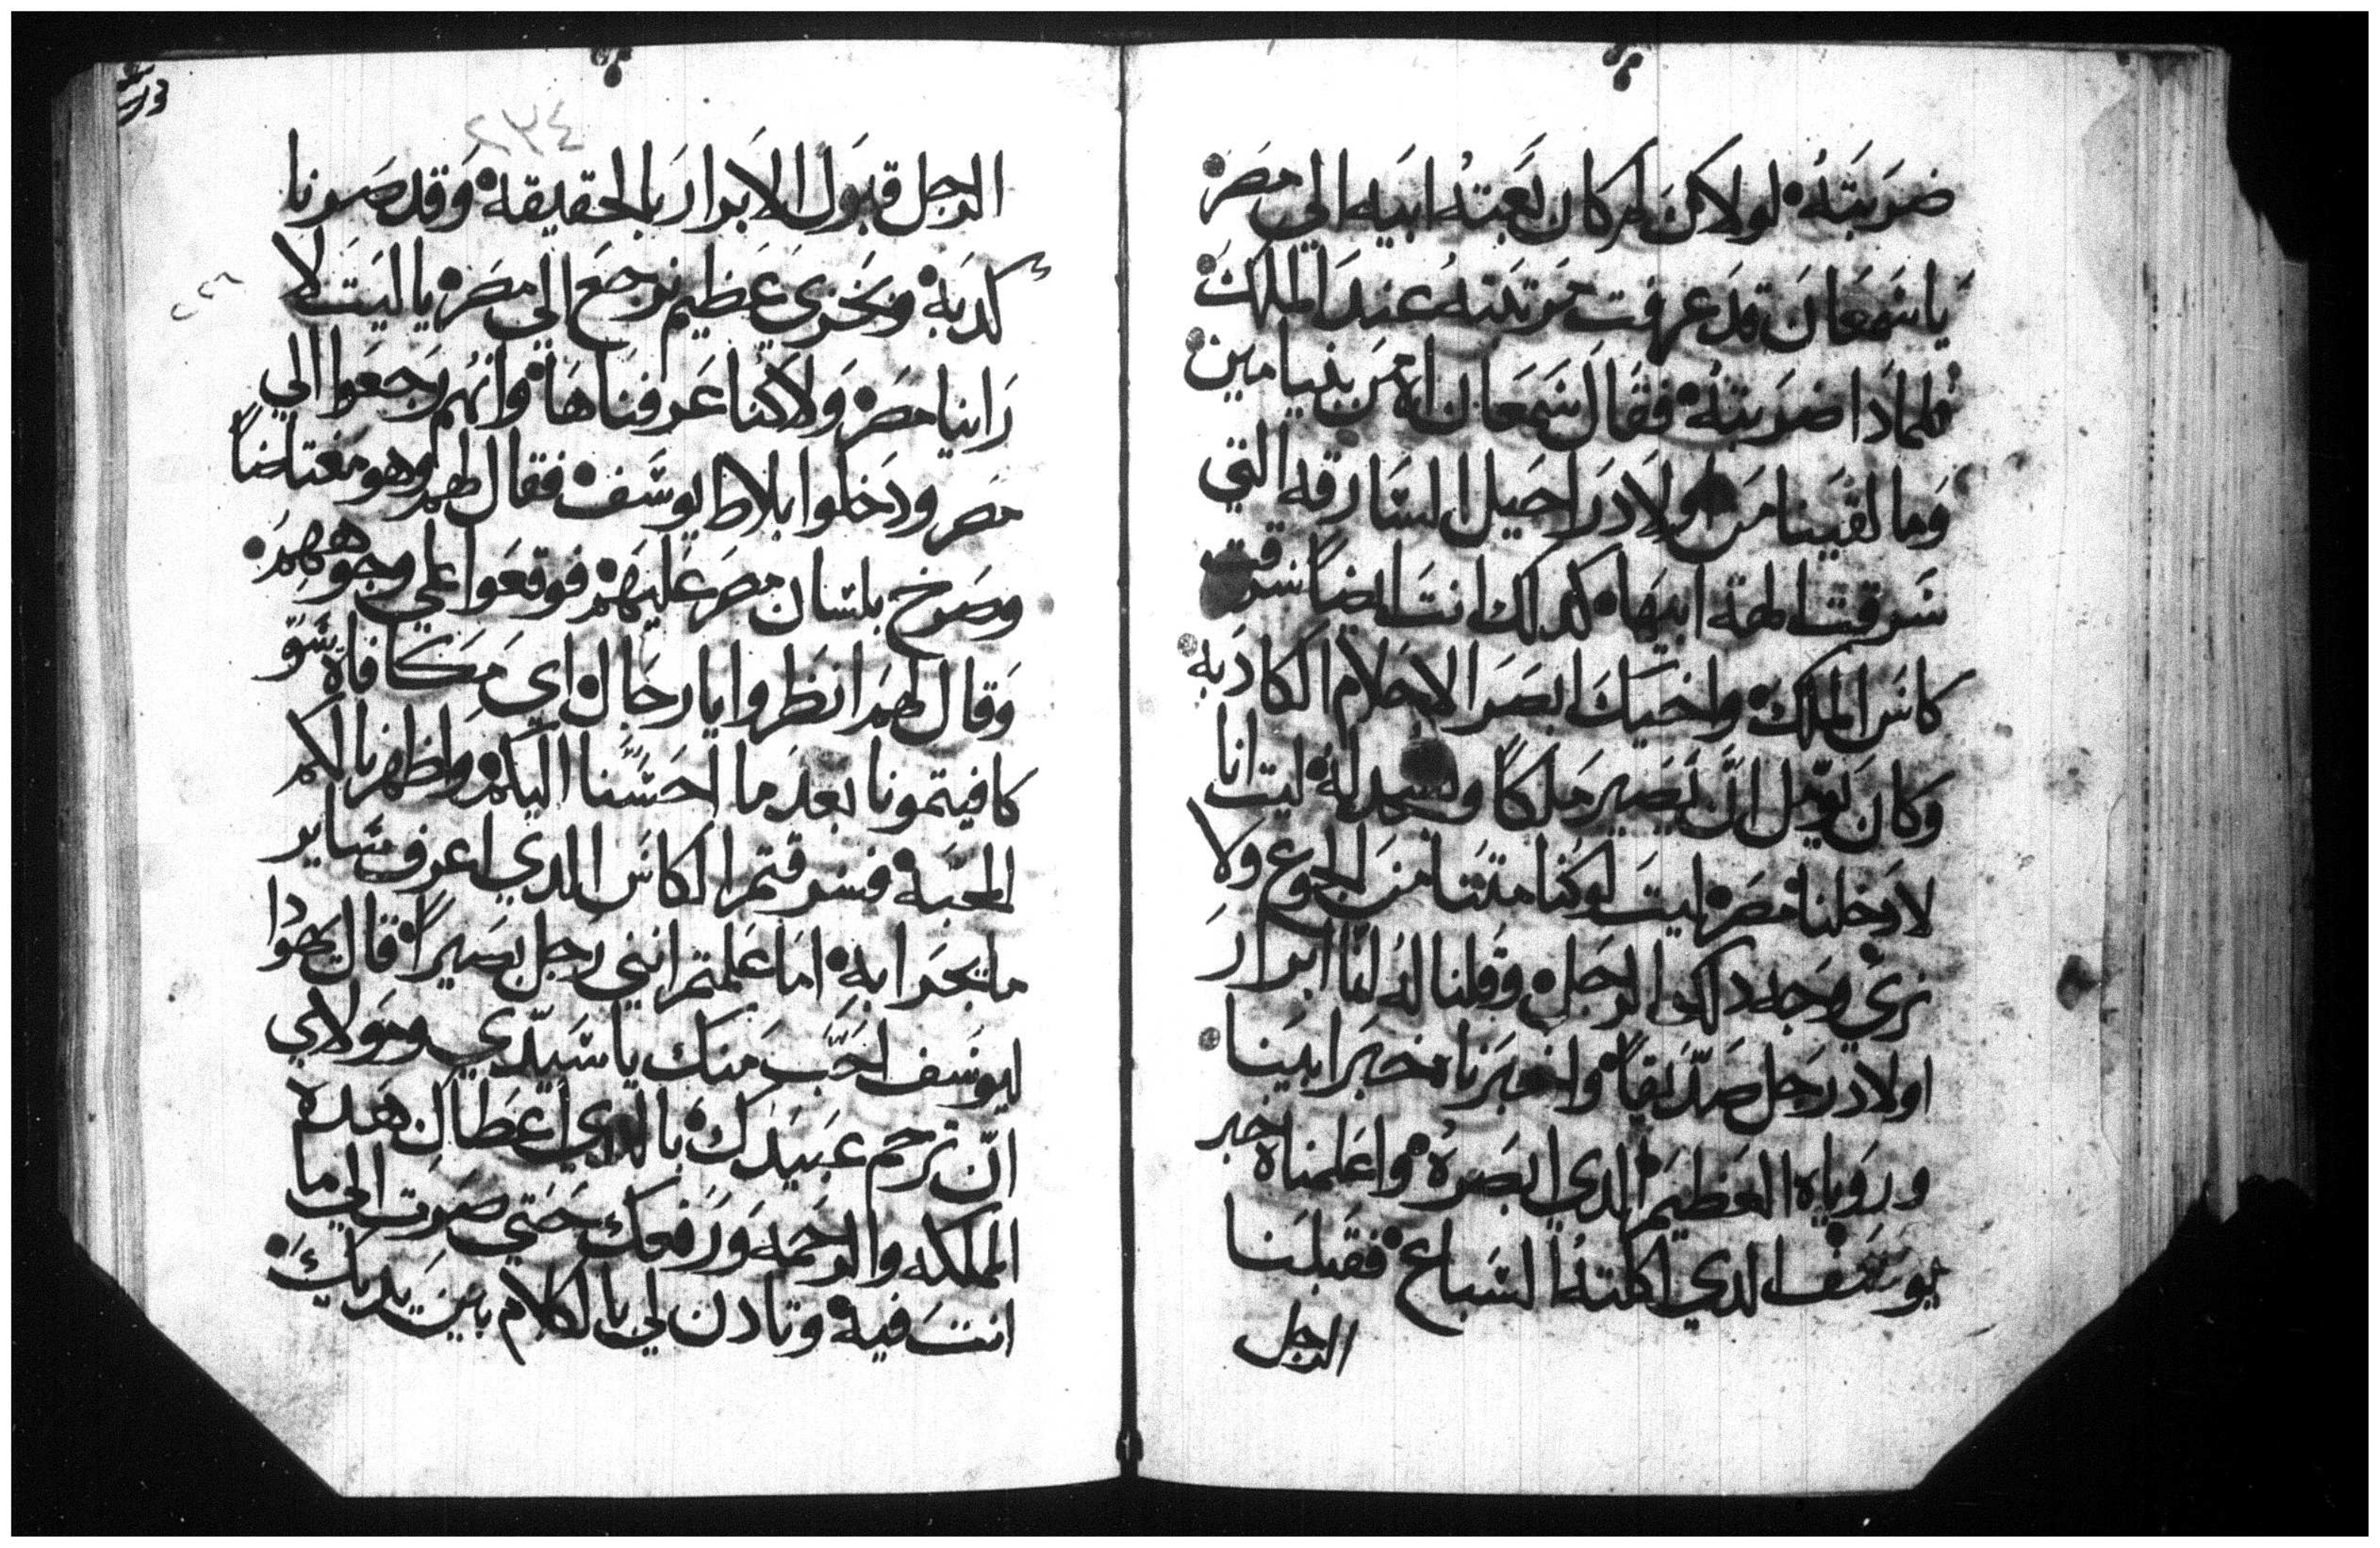 ضربته لولاكن لم كان بعته ابيه الي مصر
يا شمعان قد عرفت مرتبته عند الملك
فلمادا ضربته فقال شمعان اه من بنيامين
وما لقينا من اولاد راحيل السارقه التي
سرقت الهة ابيها كدلك انت ايضاً سرقت
كاس الملك واخيك ابصر الاحلام الكادبه
وكان يومل ان يصير ملكاً ونسجد له ليتنا
لا دخلنا مصر ليت لو كنا متنا من الجوع ولا
نري وجه دلك الرجل وقلنا له اننا ابرار
اولاد رجل صديقاً واخبرنا مخبر ابينا
ورؤياه العظيم الدي ابصره واعلمناه خبر
يوسف الدي اكلته السباع فقبلنا
الرجل
٢٣٤
الرجل قبول الابرار بالحقيقه وقد صرنا
كدبه وبخري عظيم نرجع الي مصر يا ليت لا
راينا مصر ولا كنا عرفناها وانهم رجعوا الي
مصر ودخلوا بلاط يوسف فقال لهم وهو مغتاضاً
وصرخ بلسان مصر عليهم فوقعوا علي وجوههم
وقال لهم انظروا يا رجال اي مكافاه سو
كافيتمونا بعد ما احسنا اليكم واظهرنا لكم
المحبه فسرقتم الكاس الدي اعرف ساير
ما يجرا به اما علمتم انني رجل بصيراً قال يهودا
ليوسف احب منك يا سيدي ومولاي
ان ترحم عبيدك بالدي اعطاك هده
المملكه والرحمه ورفعك حتي صرت الي ما
انت فيه وتادن لي بالكلام بين يديك